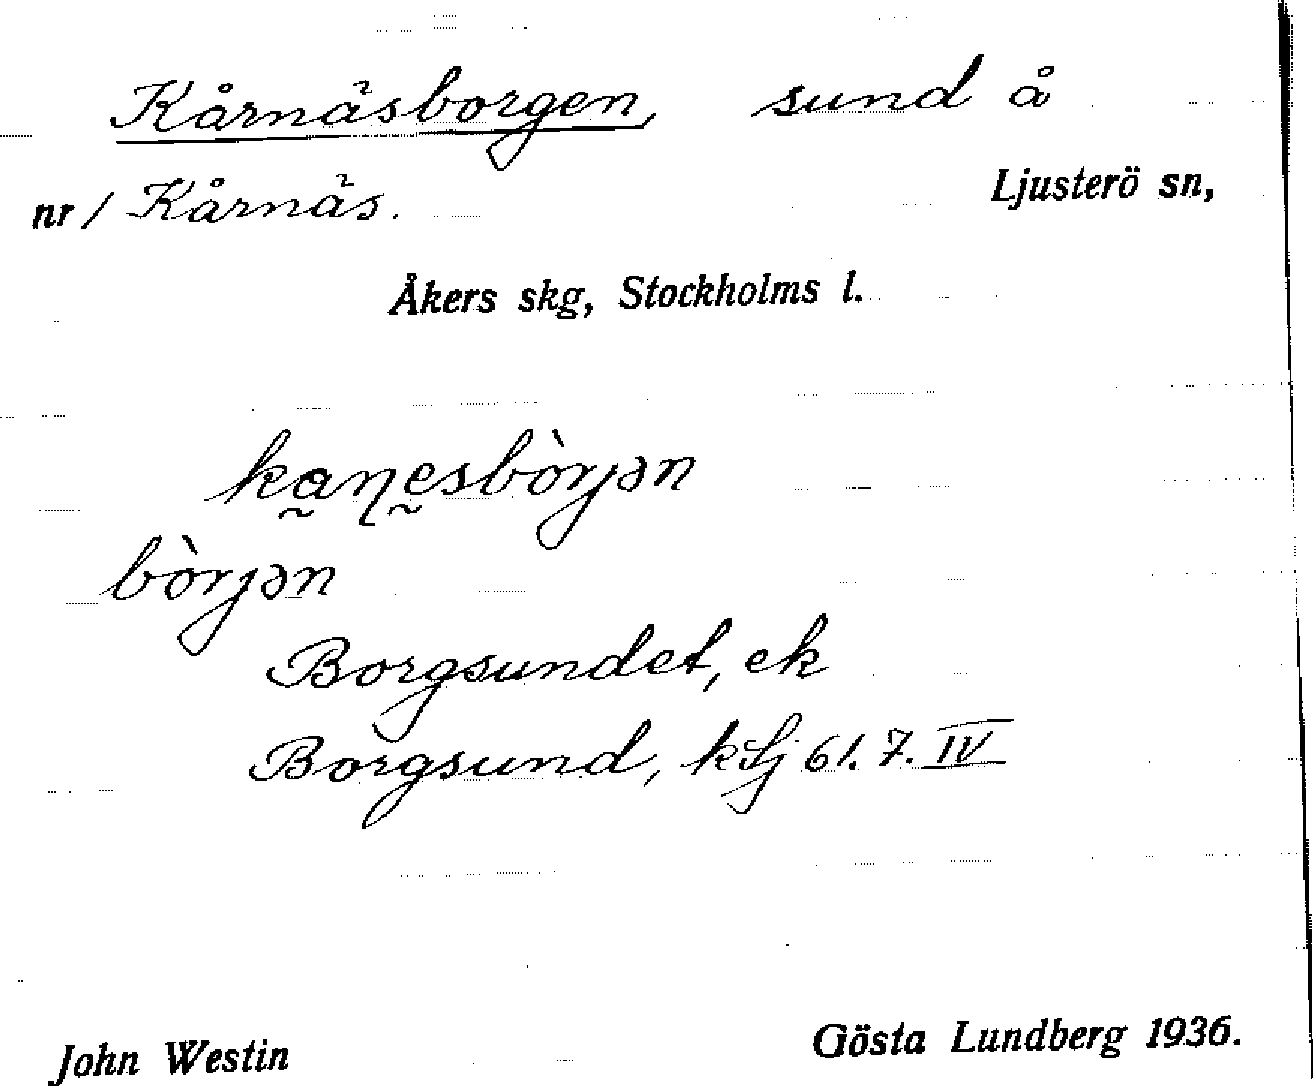 Kårnäsborgen, sund å
nr 1 Kårnäs. Ljusterö sn,
Åkers skg, Stockholms l.
ka̰ɳḛsbòrjən
bòrjən
Borgsundet, ek
Borgsund, k 61. 7. IV
John Westin Gösta Lundberg 1936.